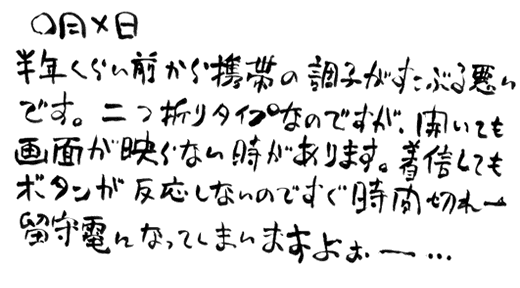 ○月×日
半年くらい前から携帯の調子がすこぶる悪い
です。二つ折りタイプなのですが、開いても
画面が映らない時があります。着信しても
ボタンが反応しないのですぐ時間切れ→
留守電になってしまいますよぉー…